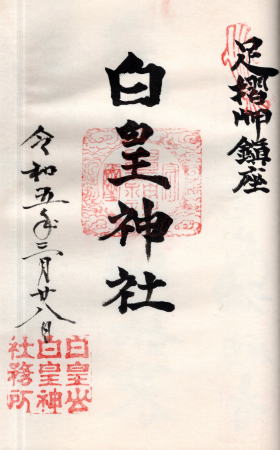 足摺岬鎮座
白皇神社
令和五年三月廿八日
白皇山
白皇神
社務所